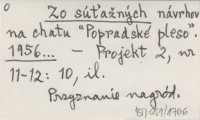 Zo súťažných návrhov
na chatu "Popradské pleso".
1956... — Projekt 2, nr
11-12: 10, il.
Przyznanie nagród.